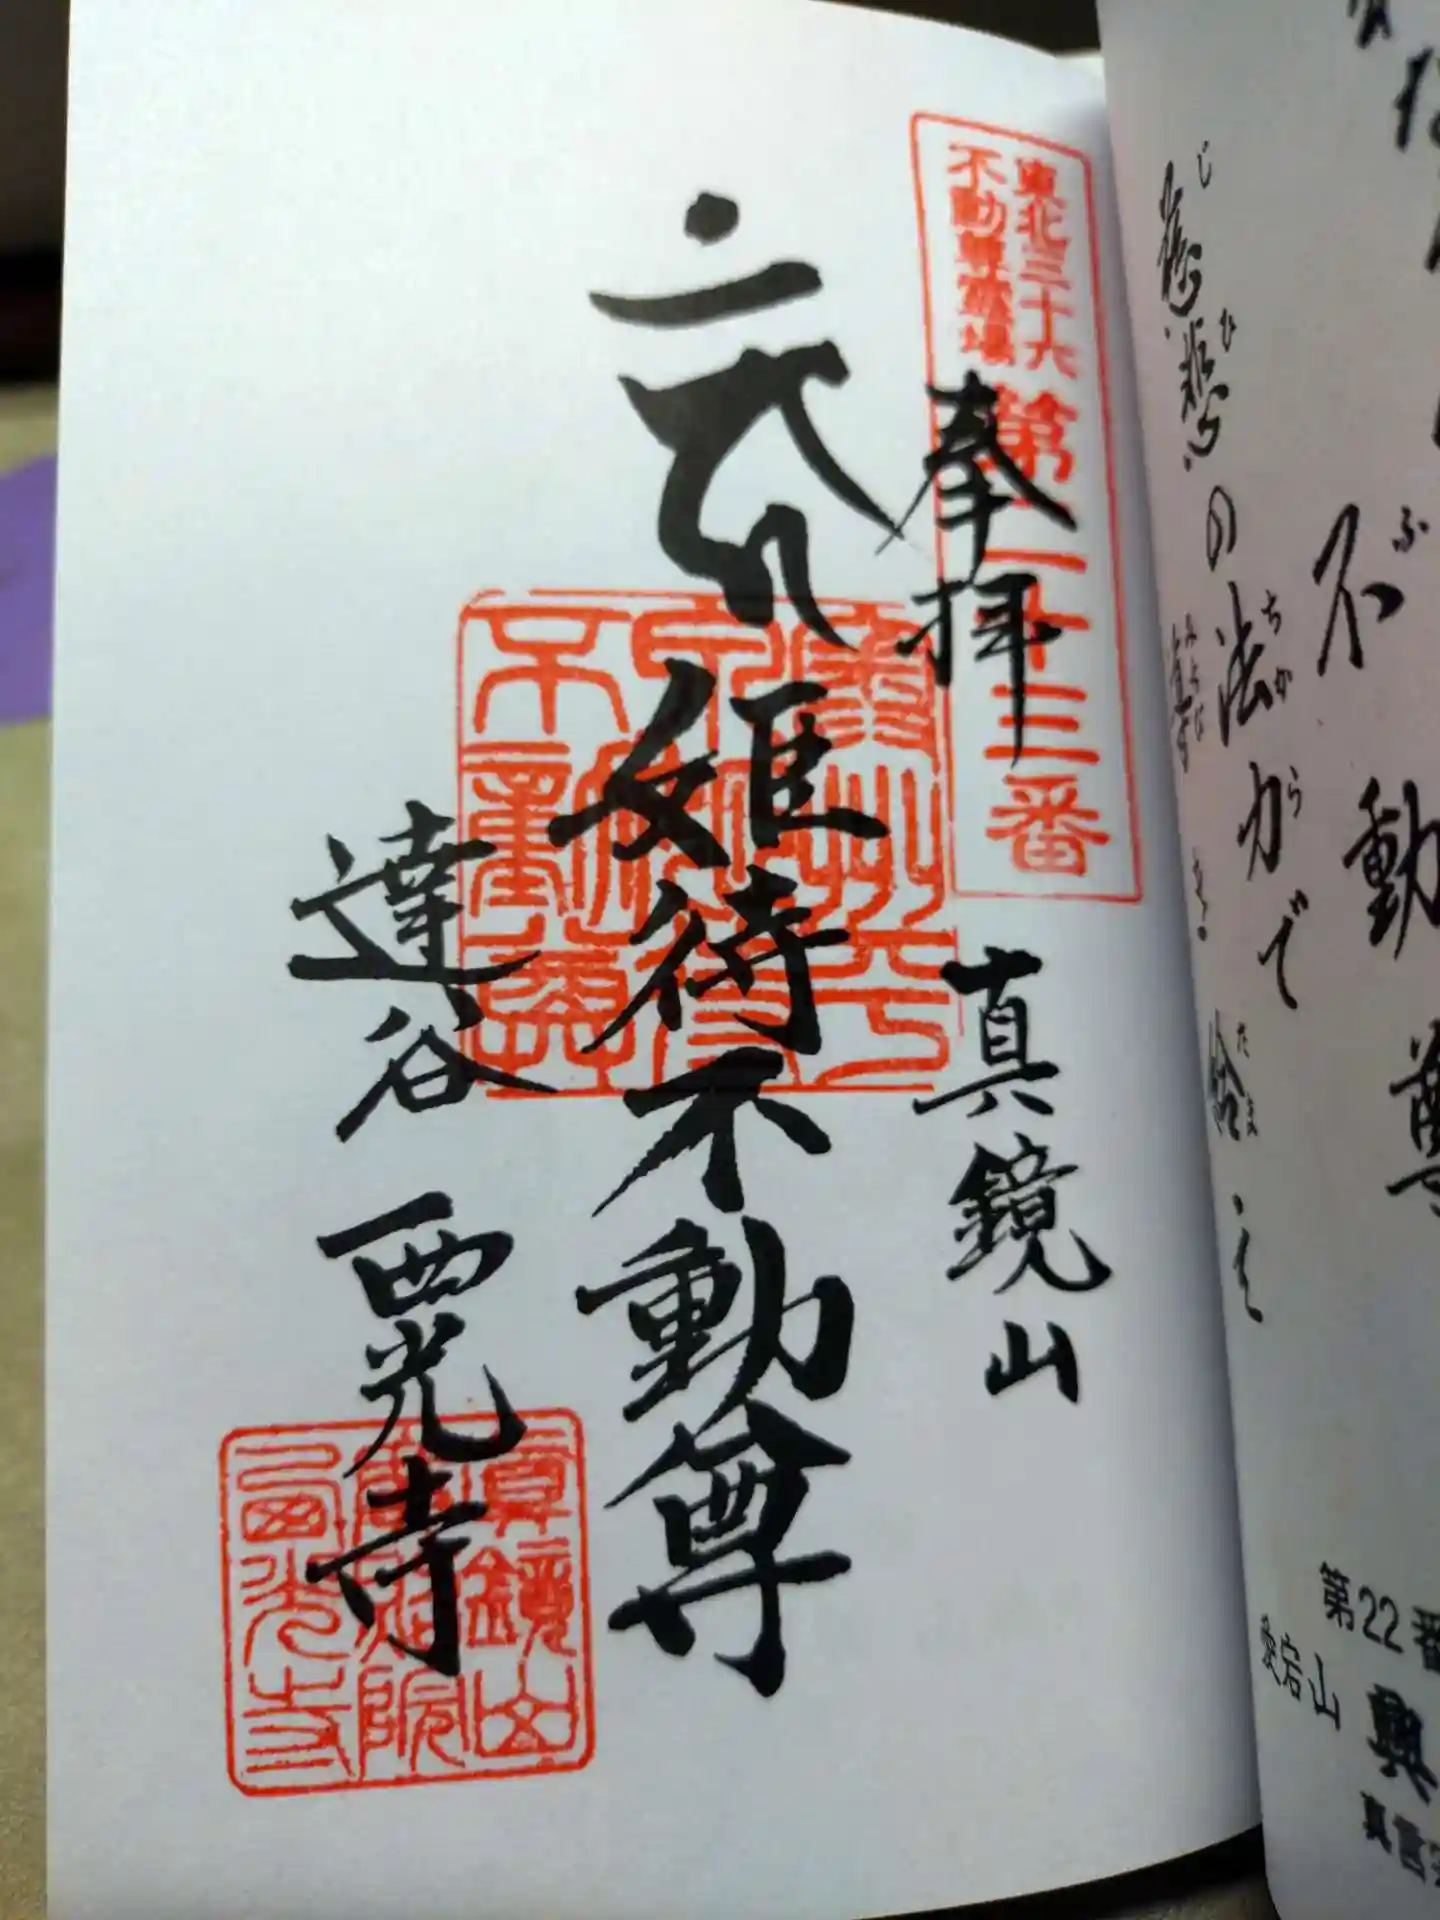 不動尊
慈悲の法力で
給
第22番
愛宕山
興
真言
東北三十六
不動尊霊場
第二十三番
奉拝
真鏡山
姫待不動尊
達谷
西光寺
真鏡山
西光寺